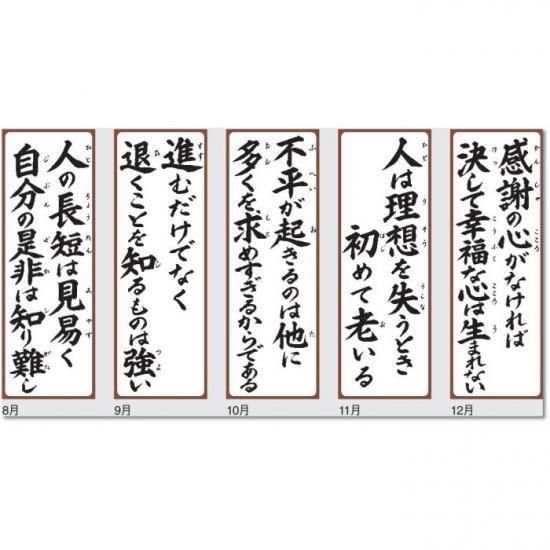 人の長短は見易く
自分の是非は知り難し
8月
進むだけでなく
退くことを知るものは強い
9月
不平が起きるのは他に
多くを求めすぎるからである
10月
人は理想を失うとき
初めて老いる
11月
感謝の心がなければ
決して幸福な心は生まれない
12月